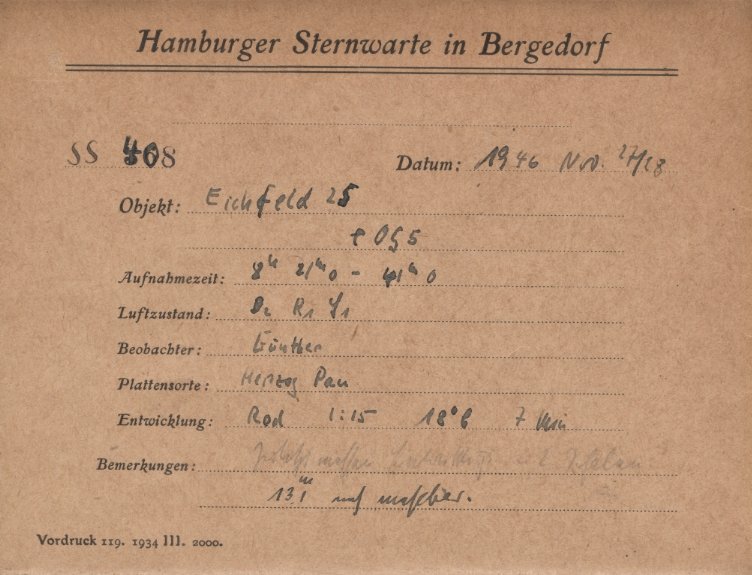 Hamburger Sternwarte in Bergedorf
SS 408
Datum: 1946 Nov. 27/28
Objekt: Eichfeld 25
OG5
Aufnahmezeit: 8h 21m0 - 41m0
Luftzustand:
Beobachter: Günther
Plattensorte: Herzog Pan
Entwicklung: Rod 1:15 18°6 7 Min
Bemerkungen:
13m1 noch messbar.
Vordruck 119. 1934 III. 2000.